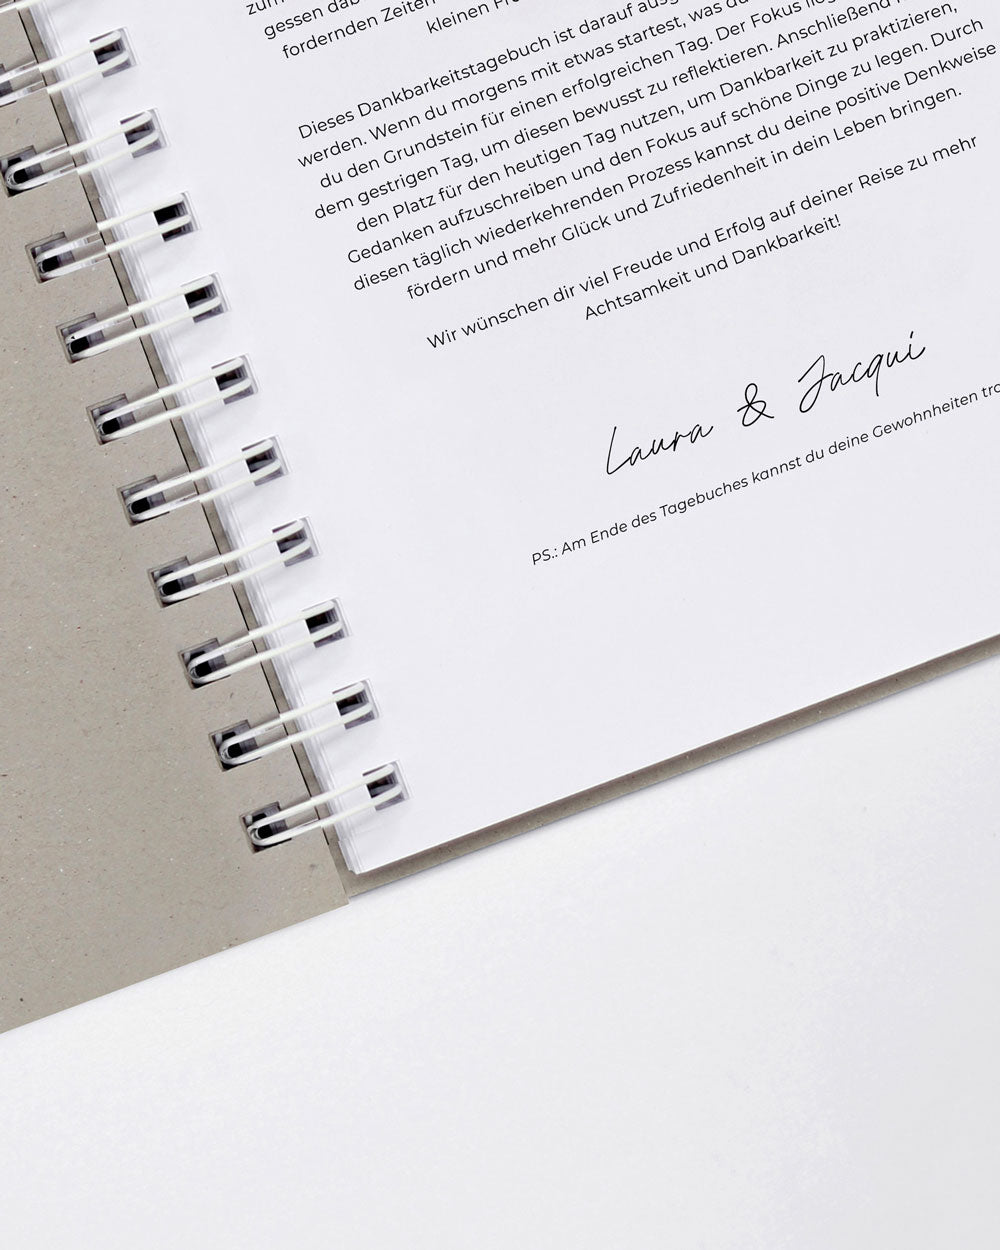 gessen
fordernden Zeiten
kleinen
Dieses Dankbarkeitstagebuch ist darauf
werden. Wenn du morgens mit etwas startest, was
du den Grundstein für einen erfolgreichen Tag. Der Fokus
dem gestrigen Tag, um diesen bewusst zu reflektieren. Anschließend
den Platz für den heutigen Tag nutzen, um Dankbarkeit zu praktizieren,
Gedanken aufzuschreiben und den Fokus auf schöne Dinge zu legen. Durch
diesen täglich wiederkehrenden Prozess kannst du deine positive Denkweise
fördern und mehr Glück und Zufriedenheit in dein Leben bringen.
Wir wünschen dir viel Freude und Erfolg auf deiner Reise zu mehr
Achtsamkeit und Dankbarkeit!
Laura & Jacqui
PS.: Am Ende des Tagebuches kannst du deine Gewohnheiten